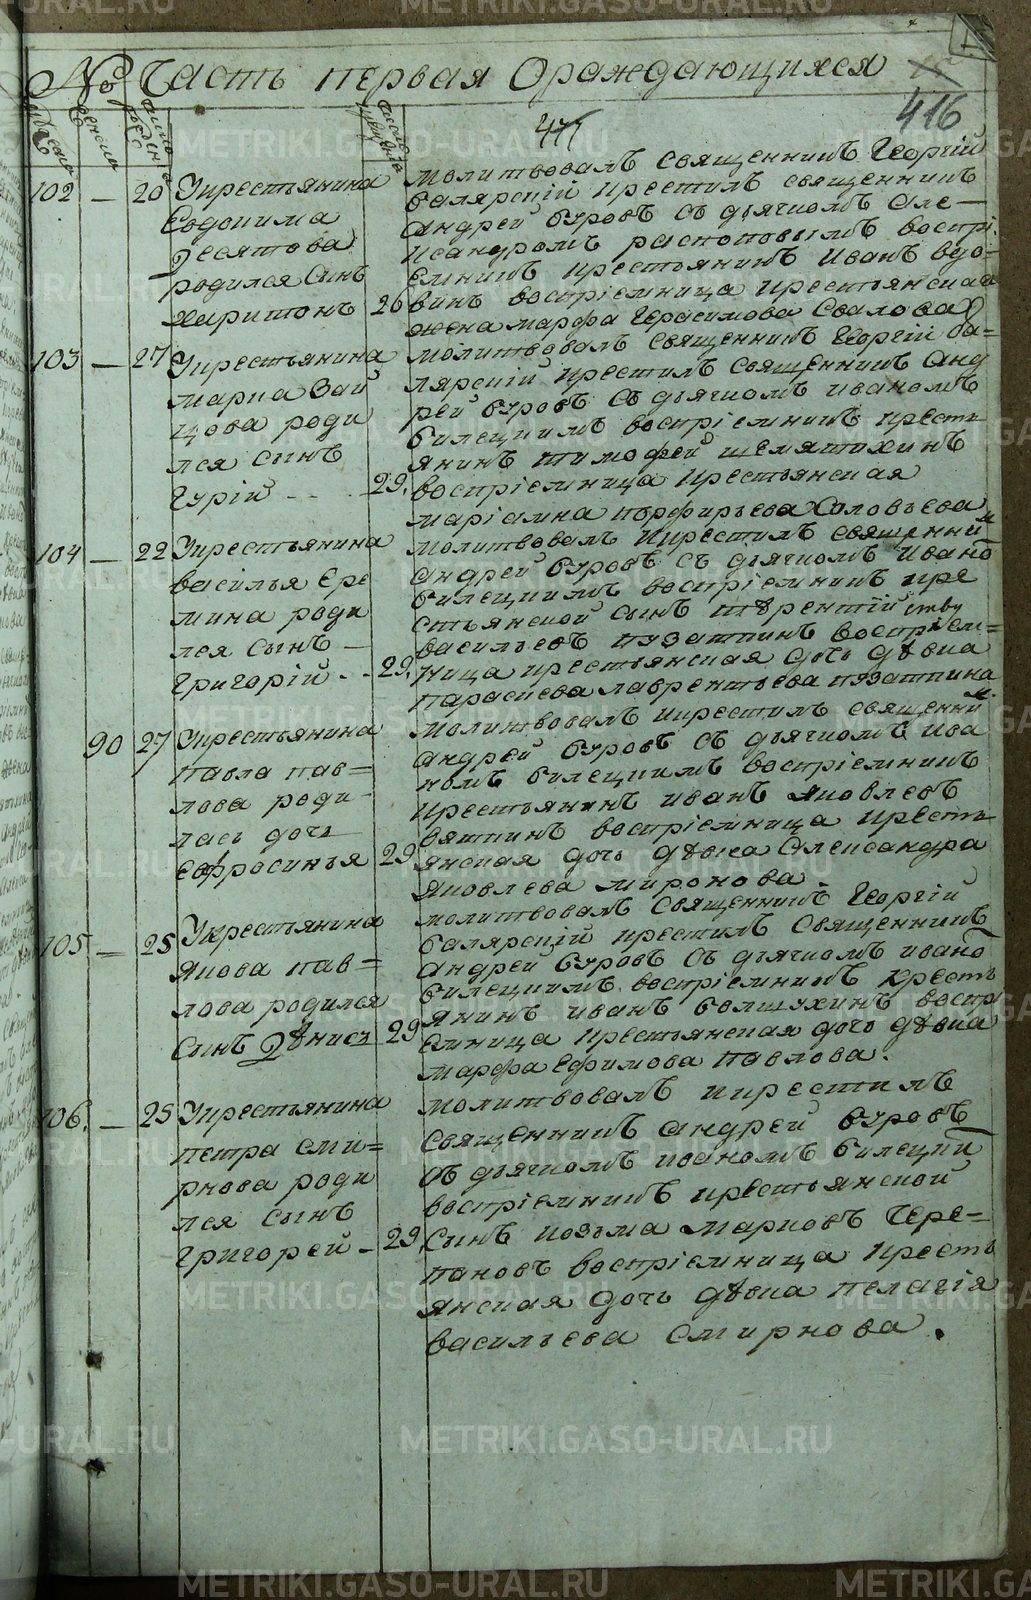 № Часть первая Ораждающихся
416
102 — 20
Укрестьянина
Евдокима
Десятова
родился сынъ
Харитонъ 26
молитвовалъ священникъ Георгій
балярскій крестилъ священникъ
Андрей буровъ съ дьячкомъ Але—
ксандромъ распоповымъ воспрі
емникъ крестьянинъ Иванъ
винъ воспріемница крестьянская
жена марфа Герасимова
103 — 27
Укрестьянина
марка Зай
цова роди
лся сынъ
Гурій - - 29.
молитвовалъ священникъ Георгій ба=
лярскій крестилъ священникъ Анд
рей буровъ съ дьячкомъ иваномъ
билецкимъ воспріемникъ кресть
янинъ тимофей шемятихинъ
воспріемница крестьянская
маріамна порфирьева Соловьева
104 — 22
Укрестьянина
василья Ере
мина роди
лся сынъ —
григорій - - 29.
молитвовалъ икрестилъ священник
андрей буровъ съ дьячкомъ ивано
билецкимъ воспріемникъ кре
стьянской сынъ терентій
васильевъ пузаткинъ воспріем=
ница крестьянская дочь дѣвка
параскева лаврентьева пузаткина
90 27
Укрестьянина
павла пав=
лова роди
лась дочь
ефросинья 29
молитвовалъ икрестилъ священни
андрей буровъ съ дьячкомъ ива
номъ билецкимъ воспріемникъ
крестьянинъ иванъ яковлевъ
вяткинъ воспріемница кресть
янская дочь дѣвка Александра
яковлева миронова
105 — 25
Укрестьянина
якова пав=
лова родился
сынъ Дѣнисъ 29
молитвовалъ священникъ Георгій
балярскій крестилъ Священникъ
андрей буровъ съ дьячкомъ ивано
билецкимъ воспріемникъ кресть
янинъ иванъ болшухинъ воспрі
емница крестьянская дочь дѣвка
марфа Ефимова павлова.
106. — 25
Укрестьянина
петра сми=
рнова роди
лся сынъ
григорей - 29.
молитвовалъ икрестилъ
священникъ андрей буровъ
съ дьячкомъ иваномъ билецки
воспріемникъ крестьянской
сынъ козьма марковъ Чере=
пановъ воспріемница кресть
янская дочь дѣвка пелагія
васильева смирнова.
METRIKI.GASO-URAL.RU